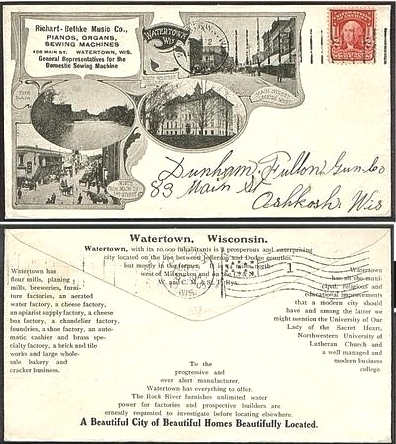 Richart-Bethke Music Co.,
PIANOS, ORGANS,
SEWING MACHINES
406 MAIN ST. WATERTOWN, WIS.
General Representatives for the
Domestic Sewing Machine
WATERTOWN
WIS.
MAIN STREET
LOOKING WEST
THE
DAM
MAIN ST.
Dunham, Fulton Gum Co
83 Main St
Oshkosh Wis
Watertown, Wisconsin.
Watertown, with its 10,000 inhabitants is a prosperous and enterprising
city located on the line between Jefferson and Dodge counties,
but mostly in the former. It is miles north
west of Milwaukee and on the
W. and C. M. & St. P. Rys.
1
Watertown has
flour mills, planing
mills, breweries, furni-
ture factories, an aerated
water factory, a cheese factory,
an apiarist supply factory, a cheese
box factory, a chandelier factory,
foundries, a shoe factory, an auto-
matic cashier and brass spe-
cialty factory, a brick and tile
works and large whole-
sale bakery and
cracker business.
Watertown
has all the muni-
cipal, religious and
educational improvements
that a modern city should
have and among the latter we
might mention the University of Our
Lady of the Sacred Heart,
Northwestern University of
Lutheran Church and
a well managed and
modern business
college.
To the
progressive and
over alert manufacturer,
Watertown has everything to offer.
The Rock River furnishes unlimited water
power for factories and prospective builders are
ernestly requested to investigate before locating elsewhere.
A Beautiful City of Beautiful Homes Beautifully Located.